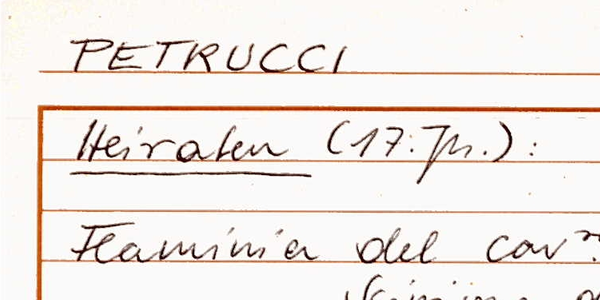 PETRUCCI
Heiraten (17. Jh.):
Flaminia del cav.re